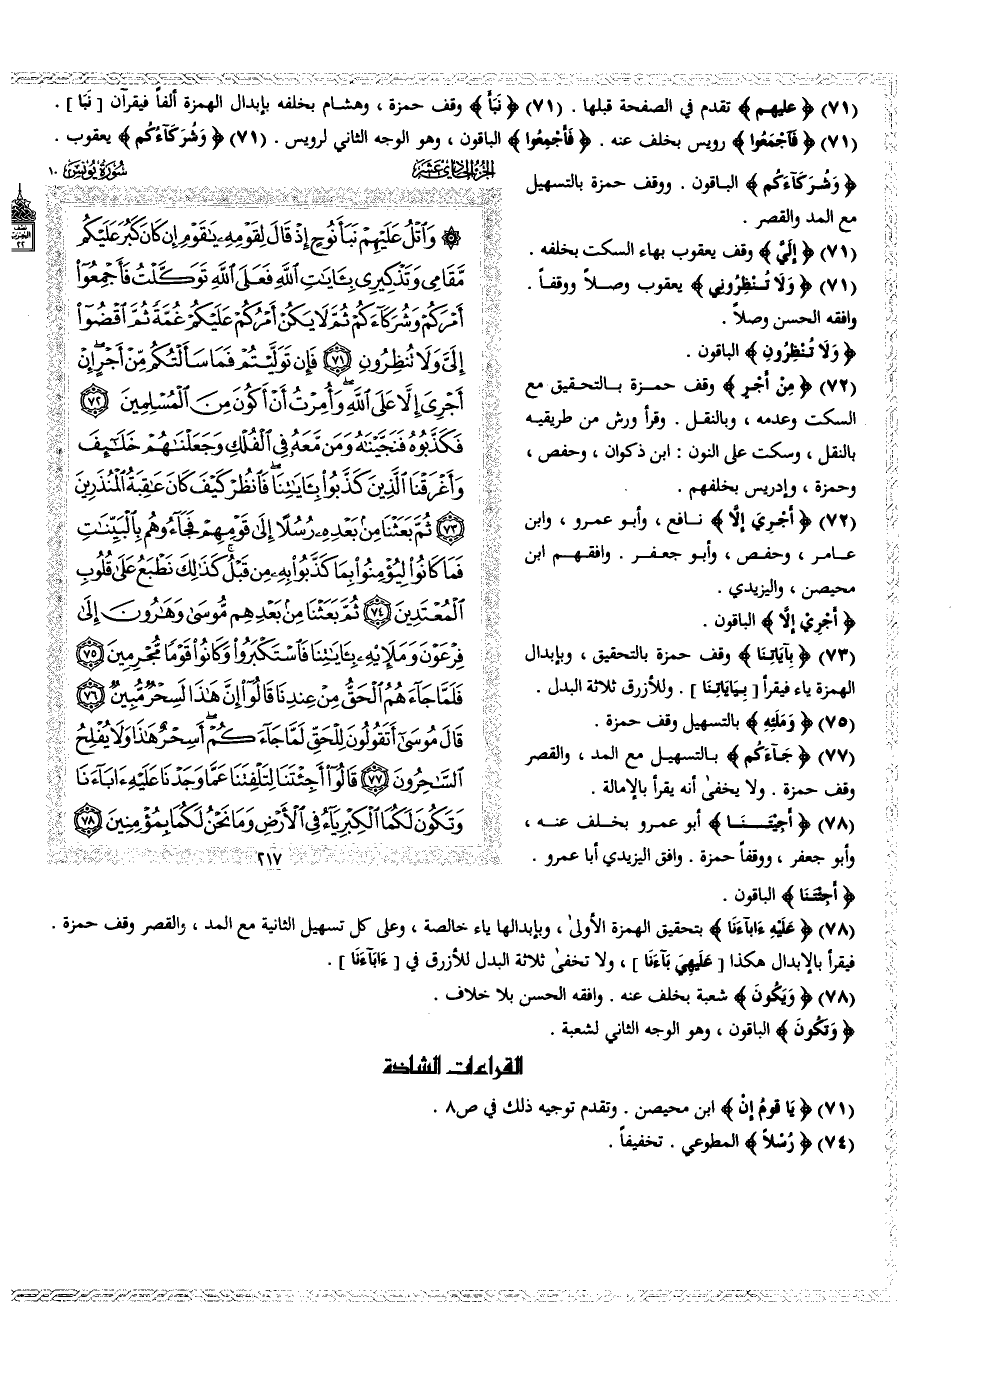 (٧١) ﴿ عليهم ﴾ تقدم في الصفحة قبلها . (٧١) ﴿ نَبَأَ ﴾ وقف حمزة ، وهشام بخلفه بإبدال الهمزة ألفاً فيقرآن [ نَبَا ] .
(٧١) ﴿ فَآجْمَعُوا ﴾ رويس بخلف عنه . ﴿ فَأَجْمِعُوا ﴾ الباقون ، وهو الوجه الثاني لرويس . (٧١) ﴿ وَشُرَكَآءُكُم ﴾ يعقوب .
الجزء الحادي عشر
سُورَة يُونس ١٠
﴿ وَشُرَكَآءَكُم ﴾ الباقون . ووقف حمزة بالتسهيل
مع المد والقصر .
(٧١) ﴿ إِلَيَّ ﴾ وقف يعقوب بهاء السكت بخلفه .
(٧١) ﴿ وَلَا تُنْظِرُونِي ﴾ يعقوب وصلاً ووقفاً .
وافقه الحسن وصلاً .
﴿ وَلَا تُنْظِرُونِ ﴾ الباقون .
(٧٢) ﴿ مِنْ أَجْرٍ ﴾ وقف حمزة بالتحقيق مع
السكت وعدمه ، وبالنقل . وقرأ ورش من طريقيه
بالنقل ، وسكت على النون : ابن ذكوان ، وحفص ،
وحمزة ، وإدريس بخلفهم .
(٧٢) ﴿ أَجْرِيَ إِلَّا ﴾ نافع ، وأبو عمرو ، وابن
عامر ، وحفص ، وأبو جعفر . وافقهم ابن
محيصن ، واليزيدي .
﴿ أَجْرِيْ إِلَّا ﴾ الباقون .
(٧٣) ﴿ بِآيَاتِنَا ﴾ وقف حمزة بالتحقيق ، وبإبدال
الهمزة ياء فيقرأ [ بِيَايَاتِنَا ] . وللأزرق ثلاثة البدل .
(٧٥) ﴿ وَمَلَئِهِ ﴾ بالتسهيل وقف حمزة .
(٧٧) ﴿ جَآءَكُم ﴾ بالتسهيل مع المد ، والقصر
وقف حمزة . ولا يخفىٰ أنه يقرأ بالإمالة .
(٧٨) ﴿ أَجِيْتَنَا ﴾ أبو عمرو بخلف عنه ،
وأبو جعفر ، ووقفاً حمزة . وافق اليزيدي أبا عمرو .
﴿ أَجِئْتَنَا ﴾ الباقون .
نصف الحزب ٢٢
۞ وَٱتْلُ عَلَيْهِمْ نَبَأَ نُوحٍ إِذْ قَالَ لِقَوْمِهِۦ يَٰقَوْمِ إِن كَانَ كَبُرَ عَلَيْكُم
مَّقَامِى وَتَذْكِيرِى بِـَٔايَٰتِ ٱللَّهِ فَعَلَى ٱللَّهِ تَوَكَّلْتُ فَأَجْمِعُوٓا۟
أَمْرَكُمْ وَشُرَكَآءَكُمْ ثُمَّ لَا يَكُنْ أَمْرُكُمْ عَلَيْكُمْ غُمَّةً ثُمَّ ٱقْضُوٓا۟
إِلَىَّ وَلَا تُنظِرُونِ ٧١ فَإِن تَوَلَّيْتُمْ فَمَا سَأَلْتُكُم مِّنْ أَجْرٍ ۖ إِنْ
أَجْرِىَ إِلَّا عَلَى ٱللَّهِ ۖ وَأُمِرْتُ أَنْ أَكُونَ مِنَ ٱلْمُسْلِمِينَ ٧٢
فَكَذَّبُوهُ فَنَجَّيْنَٰهُ وَمَن مَّعَهُۥ فِى ٱلْفُلْكِ وَجَعَلْنَٰهُمْ خَلَٰٓئِفَ
وَأَغْرَقْنَا ٱلَّذِينَ كَذَّبُوا۟ بِـَٔايَٰتِنَا ۖ فَٱنظُرْ كَيْفَ كَانَ عَٰقِبَةُ ٱلْمُنذَرِينَ
٧٣ ثُمَّ بَعَثْنَا مِنۢ بَعْدِهِۦ رُسُلًا إِلَىٰ قَوْمِهِمْ فَجَآءُوهُم بِٱلْبَيِّنَٰتِ
فَمَا كَانُوا۟ لِيُؤْمِنُوا۟ بِمَا كَذَّبُوا۟ بِهِۦ مِن قَبْلُ ۚ كَذَٰلِكَ نَطْبَعُ عَلَىٰ قُلُوبِ
ٱلْمُعْتَدِينَ ٧٤ ثُمَّ بَعَثْنَا مِنۢ بَعْدِهِم مُّوسَىٰ وَهَٰرُونَ إِلَىٰ
فِرْعَوْنَ وَمَلَإِي۟هِۦ بِـَٔايَٰتِنَا فَٱسْتَكْبَرُوا۟ وَكَانُوا۟ قَوْمًا مُّجْرِمِينَ ٧٥
فَلَمَّا جَآءَهُمُ ٱلْحَقُّ مِنْ عِندِنَا قَالُوٓا۟ إِنَّ هَٰذَا لَسِحْرٌ مُّبِينٌ ٧٦
قَالَ مُوسَىٰٓ أَتَقُولُونَ لِلْحَقِّ لَمَّا جَآءَكُمْ ۖ أَسِحْرٌ هَٰذَا وَلَا يُفْلِحُ
ٱلسَّٰحِرُونَ ٧٧ قَالُوٓا۟ أَجِئْتَنَا لِتَلْفِتَنَا عَمَّا وَجَدْنَا عَلَيْهِ ءَابَآءَنَا
وَتَكُونَ لَكُمَا ٱلْكِبْرِيَآءُ فِى ٱلْأَرْضِ وَمَا نَحْنُ لَكُمَا بِمُؤْمِنِينَ ٧٨
٢١٧
(٧٨) ﴿ عَلَيْهِ ءَابآءَنَا ﴾ بتحقيق الهمزة الأولىٰ ، وبإبدالها ياء خالصة ، وعلى كل تسهيل الثانية مع المد ، والقصر وقف حمزة .
فيقرأ بالإبدال هكذا [ عَلَيْهِيَ بَآءَنَا ] ، ولا تخفىٰ ثلاثة البدل للأزرق في [ ءَابَآءَنَا ] .
(٧٨) ﴿ وَيَكُونَ ﴾ شعبة بخلف عنه . وافقه الحسن بلا خلاف .
﴿ وَتَكُونَ ﴾ الباقون ، وهو الوجه الثاني لشعبة .
القراءات الشاذة
(٧١) ﴿ يَا قومُ إنْ ﴾ ابن محيصن . وتقدم توجيه ذلك في ص٨ .
(٧٤) ﴿ رُسْلاً ﴾ المطوعي . تخفيفاً .